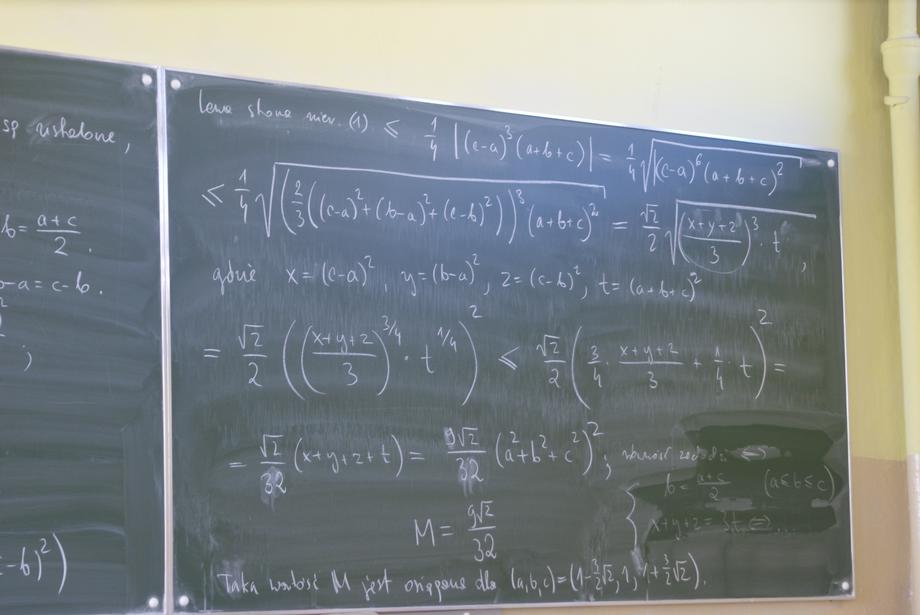 sp
b = \frac{a+c}{2}.
-a = c-b.
;
-b)^2)
Lewa strona nier. (1) ≤ \frac{1}{4} |(c-a)^3 (a+b+c)| = \frac{1}{4} \sqrt{(c-a)^6 (a+b+c)^2}
≤ \frac{1}{4} \sqrt{(\frac{2}{3}((c-a)^2+(b-a)^2+(c-b)^2))^3 (a+b+c)^2} = \frac{\sqrt{2}}{2} \sqrt{(\frac{x+y+z}{3})^3 · t},
gdzie x = (c-a)^2, y = (b-a)^2, z = (c-b)^2, t = (a+b+c)^2
= \frac{\sqrt{2}}{2} ((\frac{x+y+z}{3})^{3/4} · t^{1/4})^2 ≤ \frac{\sqrt{2}}{2} (\frac{3}{4} · \frac{x+y+z}{3} + \frac{1}{4} · t)^2 =
= \frac{\sqrt{2}}{32} (x+y+z+t) = \frac{9\sqrt{2}}{32} (a^2+b^2+c^2)^2; równość zachodzi ⇔
{ b = \frac{a+c}{2} (a≤b≤c)
x+y+z = 3t ⇔ ...
M = \frac{9\sqrt{2}}{32}
Taka wartość M jest osiągane dla (a,b,c) = (1-\frac{3}{2}\sqrt{2}, 1, 1+\frac{3}{2}\sqrt{2}).